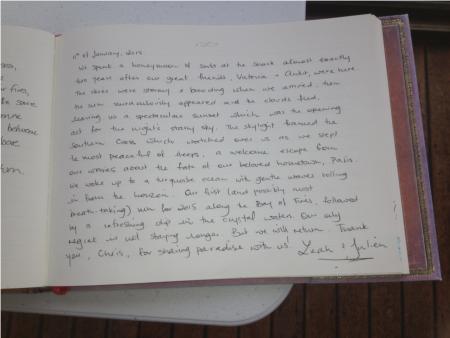 11th of January, 2015.
We spent a honeymoon of sorts at the shack almost exactly
ten years after our great friends, Victoria & were here.
The skies were stormy & brooding when we arrived, then
the sun surreptitiously appeared and the clouds fled,
leaving us a spectacular sunset which was the opening
act for the night's starry sky. The skylight framed the
Southern Cross which watched over us as we slept
the most peaceful of sleeps, a welcome escape from
our worries about the fate of our beloved hometown, Paris.
We woke up to a turquoise ocean with gentle waves rolling
in from the horizon. Our first (and possibly most
breath-taking) run for 2015 along the Bay of Fires, followed
by a refreshing dip in the crystal waters. Our only
regret is not staying longer. But we will return. Thank
you, Chris, for sharing paradise with us. Leah & Julien